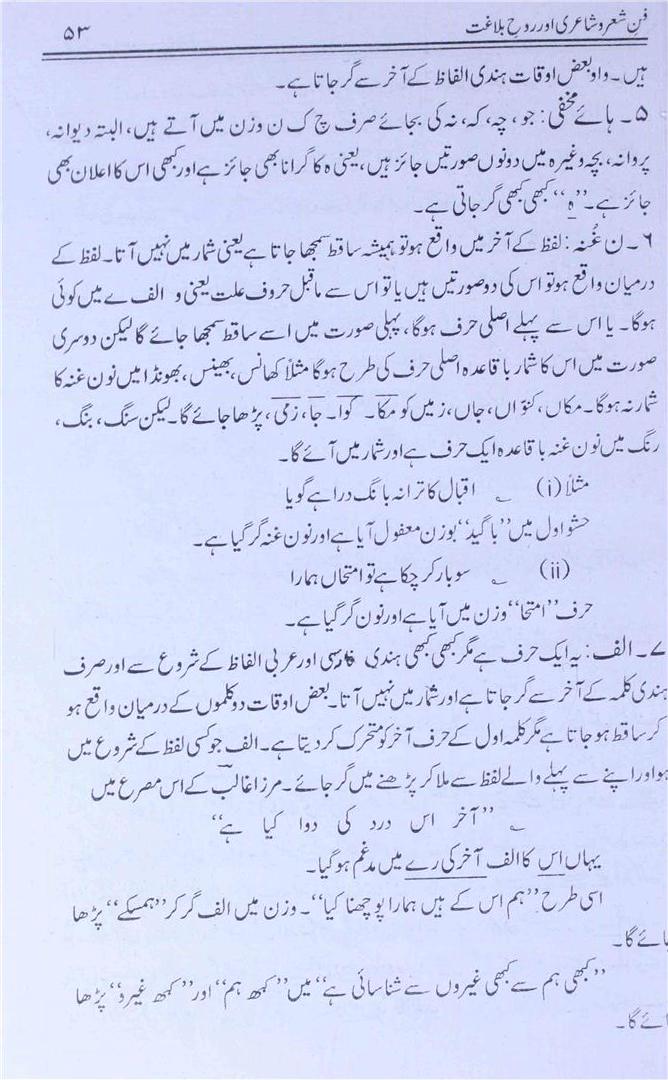 فنِ شعر و شاعری اور روحِ بلاغت ۵۳
ہیں۔ واو بعض اوقات ہندی الفاظ کے آخر سے گر جاتا ہے۔
۵۔ ہائے مخفی: جو، چہ، کہ، نہ کی بجائے صرف چ ک ن وزن میں آتے ہیں، البتہ دیوانہ،
پروانہ، بچہ وغیرہ میں دونوں صورتیں جائز ہیں، یعنی ہ کا گرانا بھی جائز ہے اور کبھی اس کا اعلان بھی
جائز ہے۔ ”ہ“ کبھی کبھی گر جاتی ہے۔
۶۔ ن غُنہ: لفظ کے آخر میں واقع ہو تو ہمیشہ ساقط سمجھا جاتا ہے یعنی شمار میں نہیں آتا۔ لفظ کے
درمیان واقع ہو تو اس کی دو صورتیں ہیں یا تو اس سے ماقبل حروف علت یعنی و الف ے میں کوئی
ہوگا۔ یا اس سے پہلے اصلی حرف ہوگا، پہلی صورت میں اسے ساقط سمجھا جائے گا لیکن دوسری
صورت میں اس کا شمار باقاعدہ اصلی حرف کی طرح ہوگا مثلاً کھانس، بھینس، بھونڈا میں نون غنہ کا
شمار نہ ہوگا۔ مکاں، کنوّاں، جاں، زمیں کو مکا۔ کوا۔ جا، زمی، پڑھا جائے گا۔ لیکن سنگ، بنگ،
رنگ میں نون غنہ باقاعدہ ایک حرف ہے اور شمار میں آئے گا۔
مثلاً (i) ؎ اقبال کا ترانہ بانگ درا ہے گویا
حشو اول میں ”باگید“ بوزن مفعول آیا ہے اور نون غنہ گر گیا ہے۔
(ii) ؎ سو بار کر چکا ہے تو امتحاں ہمارا
حرف ”امتحا“ وزن میں آیا ہے اور نون گر گیا ہے۔
۷۔ الف: یہ ایک حرف ہے مگر کبھی کبھی ہندی فارسی اور عربی الفاظ کے شروع سے اور صرف
ہندی کلمہ کے آخر سے گر جاتا ہے اور شمار میں نہیں آتا۔ بعض اوقات دو کلموں کے درمیان واقع ہو
کر ساقط ہو جاتا ہے مگر کلمہ اول کے حرف آخر کو متحرک کر دیتا ہے۔ الف جو کسی لفظ کے شروع میں
ہو اور اپنے سے پہلے والے لفظ سے ملا کر پڑھنے میں گر جائے۔ مرزا غالبؔ کے اس مصرع میں
؎ ”آخر اس درد کی دوا کیا ہے“
یہاں اس کا الف آخر کی رے میں مدغم ہو گیا۔
اسی طرح ”ہم اس کے ہیں ہمارا پوچھنا کیا“۔ وزن میں الف گر کر ”ہمسکے“ پڑھا
جائے گا۔
”کبھی ہم سے کبھی غیروں سے شناسائی ہے“ میں ”کبھ ہم“ اور ”کبھ غیرو“ پڑھا
جائے گا۔